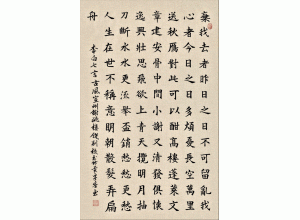 棄我去者昨日之日不可留亂我
心者今日之日多煩憂長風萬里
送秋鴈對此可以酣高樓蓬萊文
章建安骨中間小謝又清發俱懷
逸興壯思飛欲上青天攬明月抽
刀斷水水更流舉盃銷愁愁更愁
人生在世不稱意明朝散髮弄扁
舟
李白七言古風宣州謝朓樓餞別校書叔雲